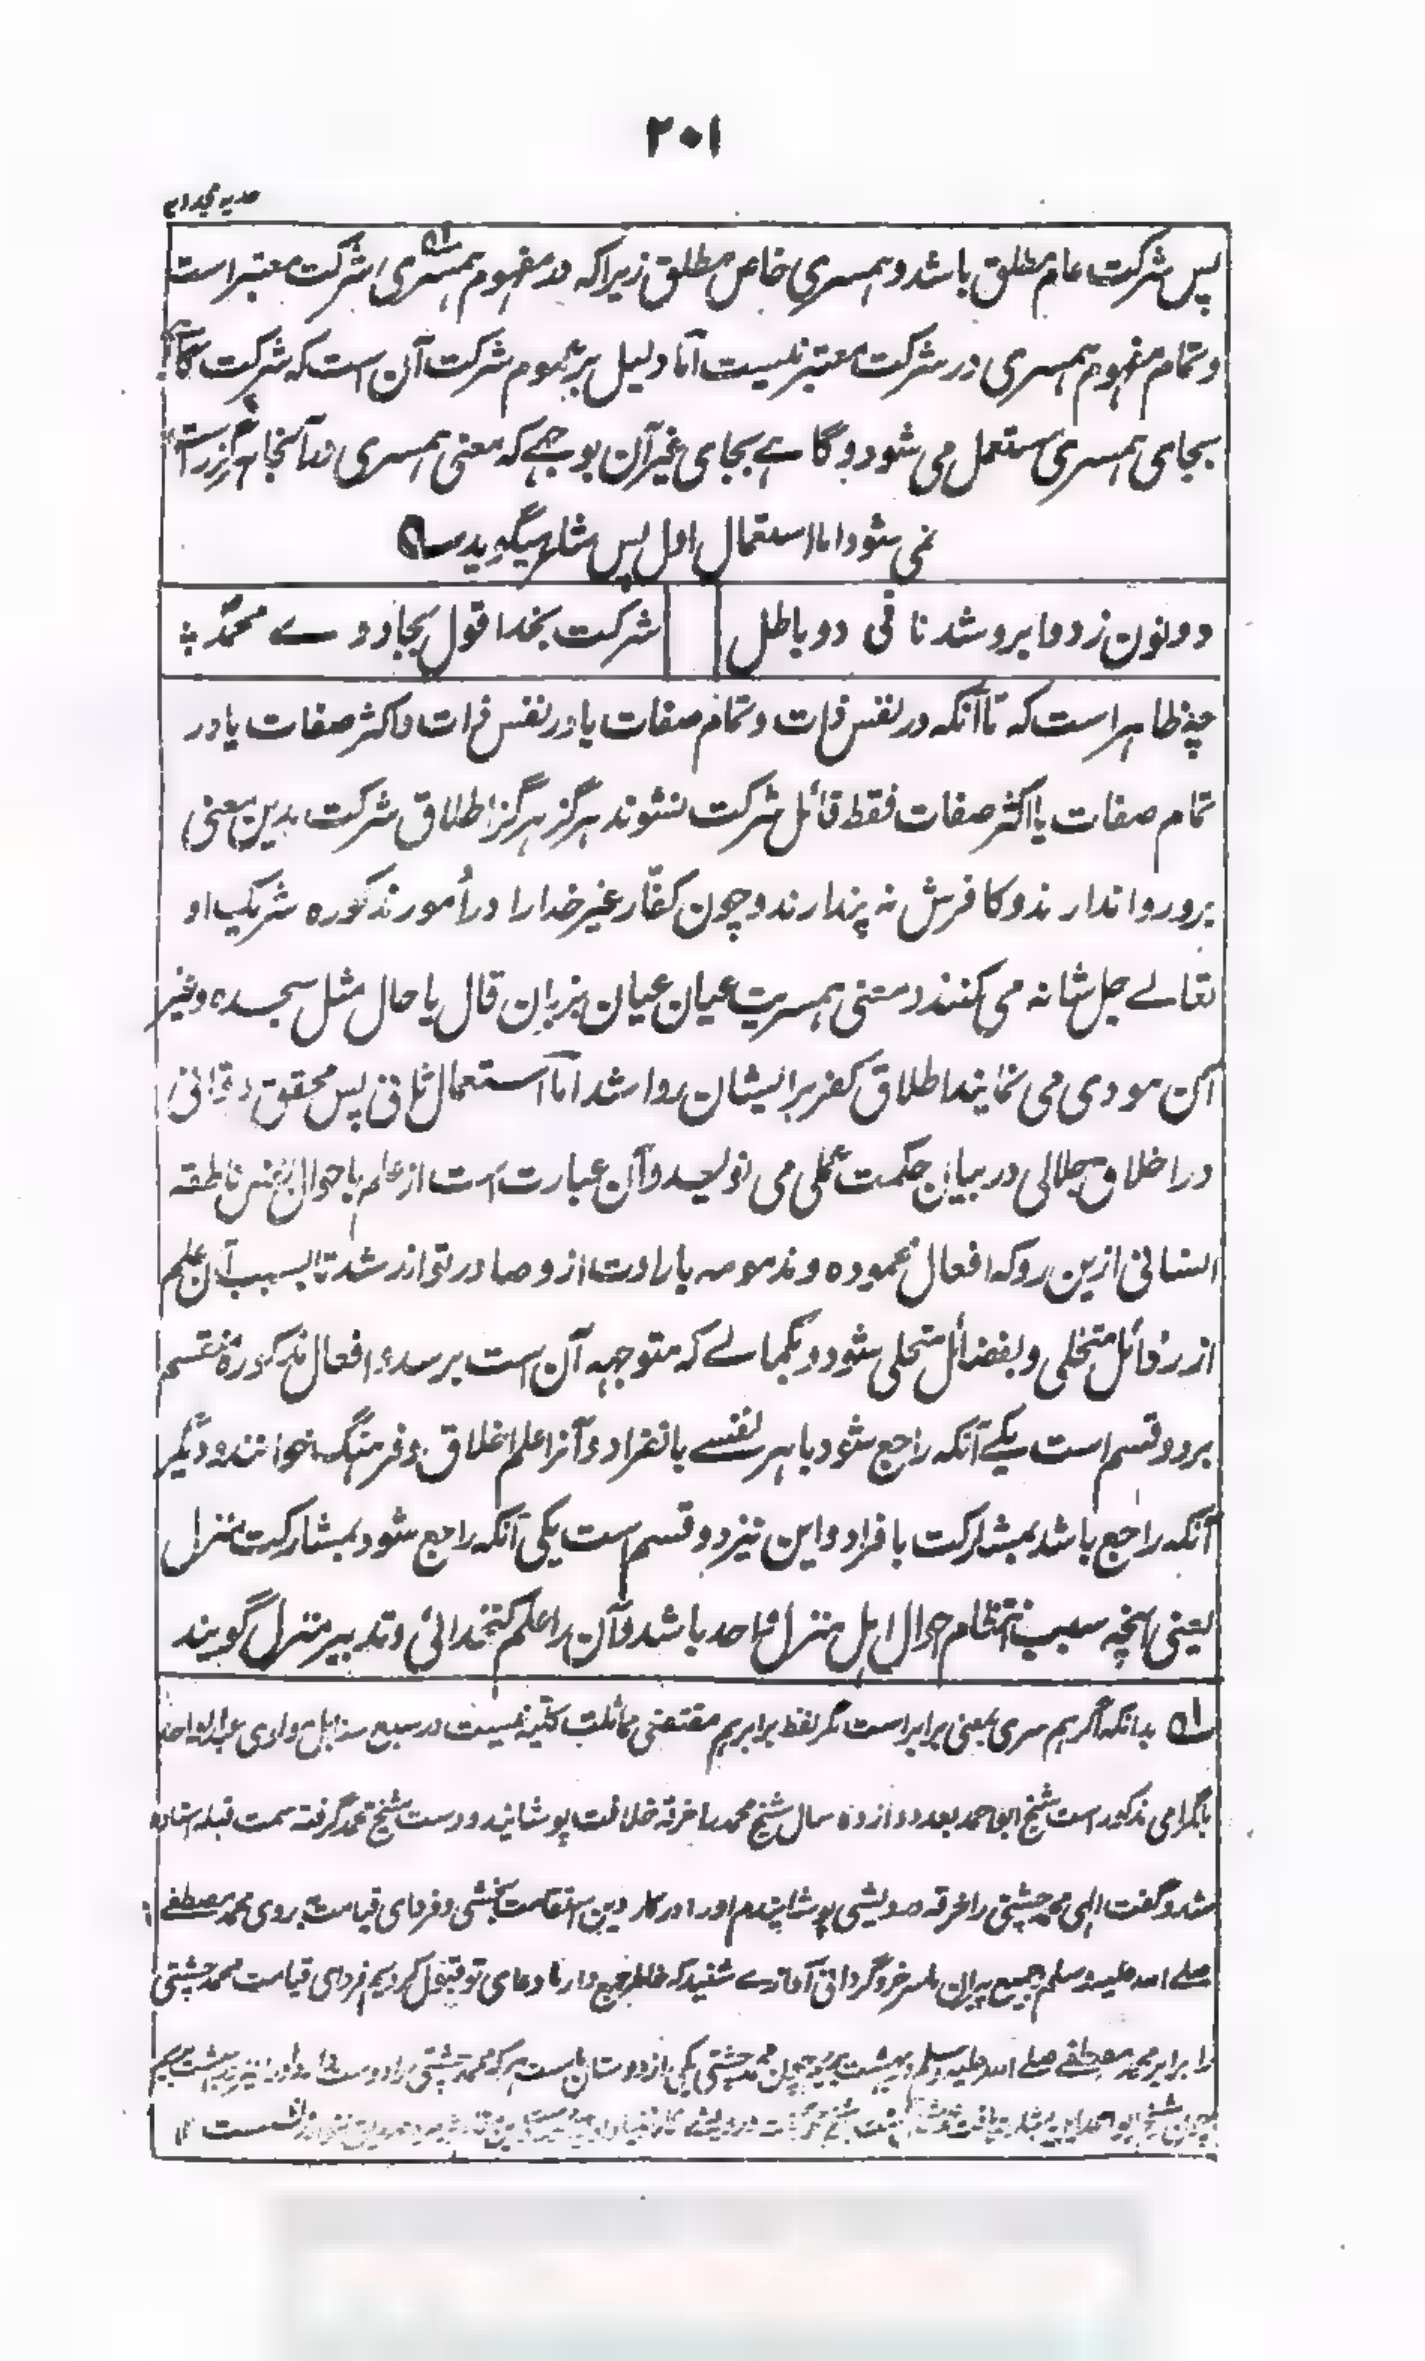 ۲۰۱
هدیه مجددیه
پس شرکت عام مطلق باشد و همسری خاص مطلق زیراکه در مفهوم همسری شرکت معتبر است
و تمام مفهوم همسری در شرکت معتبر نیست اما دلیل بر عموم شرکت آن است که شرکت گاه
بجای همسری مستعمل می شود و گاهے بجای غیر آن بوجهے که معنی همسری در آنجا هرگز راست
نمی شود اما استعمال اول پس شاعر میگوید
دو نون ز دو ابرو شد نافی دو باطل
شرکت بخدا قول بجادوے محمدؐ
چه ظاهر است که تا آنکه در نفس ذات و تمام صفات یا در نفس ذات و اکثر صفات یا در
تمام صفات یا اکثر صفات فقط قائل شرکت نشوند هرگز هرگز اطلاق شرکت بدین معنی
برو روا ندارند و کافرش نه پندارند و چون کفّار غیر خدا را در اُمور مذکوره شریک او
تعالے جل شانه می کنند و معنی همسریت عیان عیان بزبان قال یا حال مثل سجده و غیر
آن مودی می نمایند اطلاق کفر بر ایشان روا شد اما استعمال ثانی پس محقق دوانی
در اخلاق جلالی در بیان حکمت عملی می نویسد و آن عبارت است از علم باحوال نفس ناطقه
انسانی ازین رو که افعال محموده و مذمومه بارادت ازو صادر تواند شد تا بسبب آن علم
از رذائل متخلی و بفضائل متحلی شود و بکمالے که متوجه آن است برسد و افعال مذکوره منقسم
بر دو قسم است یکے آنکه راجع شود با هر نفسے بانفراد و آنرا علم اخلاق و فرهنگ خوانند و دیگر
آنکه راجع باشد بمشارکت با فراد و این نیز دو قسم است یکی آنکه راجع شود بمشارکت منزل
یعنی آنچه سبب انتظام احوال اهل منزل واحد باشد و آن را علم کتخدائی و تدبیر منزل گویند
۱ بدانکه اگر هم سری بمعنی برابر است مگر لفظ برابر هم مقتضی مماثلت کلیه نیست در سبع سنابل مولوی عبدالواحد
بلگرامی مذکور است شیخ ابو احمد بعد دوازده سال شیخ محمد را خرقه خلافت پوشانید و دست شیخ محمد گرفته سمت قبله استاده
شد و گفت الهی محمد چشتی را خرقه درویشی پوشانیدم او را در کار دین استقامت بخشی و فردای قیامت بروی محمد مصطفے
صلے الله علیه وسلم و جمیع پیران سرخرو گردانی آوازے شنید که خاطر جمع دار ما دعای تو قبول کردیم فردای قیامت محمد چشتی
را برابر محمد مصطفے صلے الله علیه وسلم در بهشت بریم چون محمد چشتی یکی از دوستان ماست هر که محمد چشتی را دوست دارد او را نیز در بهشت بریم